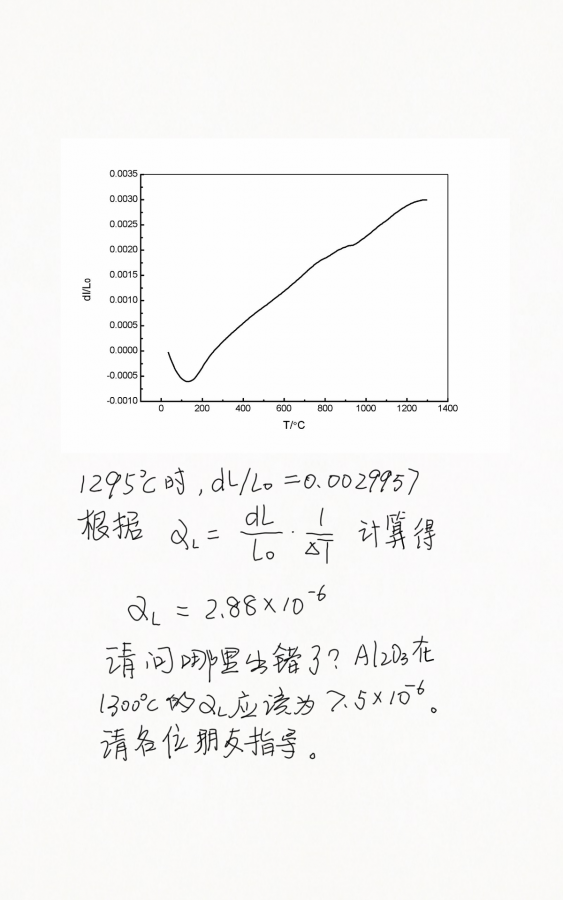 0.0035
0.0030
0.0025
0.0020
0.0015
0.0010
0.0005
0.0000
-0.0005
-0.0010
dl/L₀
0 200 400 600 800 1000 1200 1400
T/°C
1295℃时,dL/L₀=0.0029957
根据 αL = dL/L₀ · 1/ΔT 计算得
αL = 2.88×10⁻⁶
请问哪里出错了?Al2O3在
1300℃的αL应该为7.5×10⁻⁶。
请各位朋友指导。